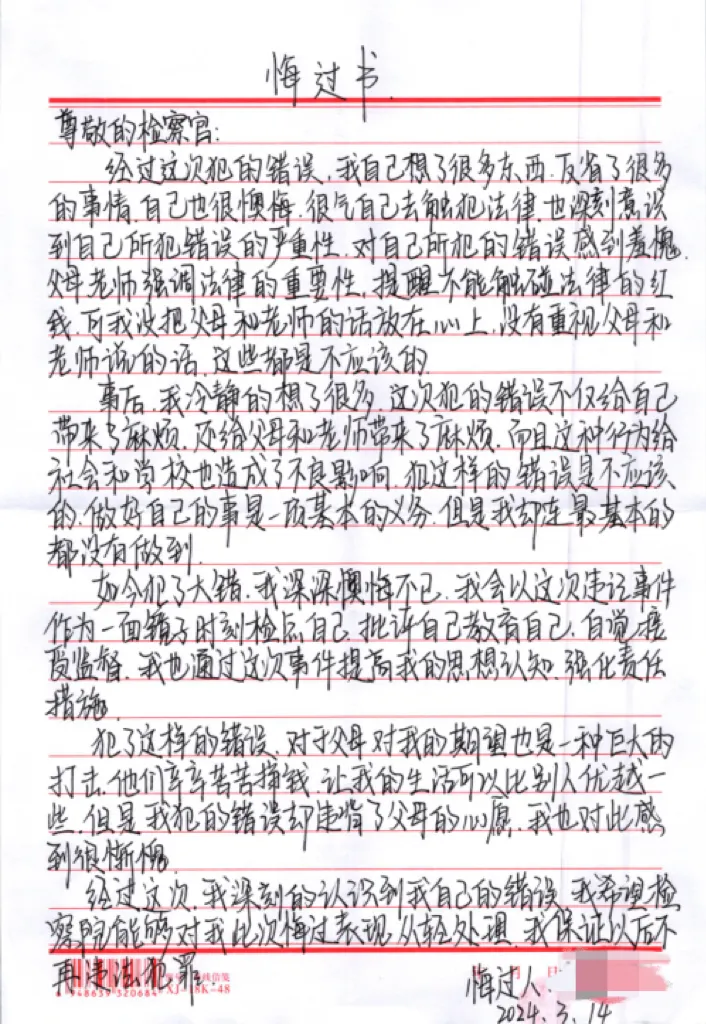 悔过书.
尊敬的检察官:
经过这次犯的错误,我自己想了很多东西.反省了很多
的事情.自己也很懊悔.很气自己去触犯法律.也深刻意识
到自己所犯错误的严重性.对自己所犯的错误感到羞愧.
父母老师强调法律的重要性.提醒不能触碰法律的红
线.可我没把父母和老师的话放在心上.没有重视父母和
老师说的话.这些都是不应该的.
事后.我冷静的想了很多.这次犯的错误不仅给自己
带来了麻烦.还给父母和老师带来了麻烦.而且这种行为给
社会和学校也造成了不良影响.犯这样的错误是不应该
的.做好自己的事是一项基本的义务.但是我却连最基本的
都没有做到.
如今犯了大错.我深深懊悔不已.我会以这次违记事件
作为一面镜子时刻检点自己.批评自己教育自己.自觉接
受监督.我也通过这次事件提高我的思想认知.强化责任
措施.
犯了这样的错误.对于父母对我的期望也是一种巨大的
打击.他们辛辛苦苦挣钱.让我的生活可以比别人优越一
些.但是我犯的错误却违背了父母的心愿.我也对此感
到很惭愧.
经过这次.我深刻的认识到我自己的错误.我希望检
察院能够对我此次悔过表现从轻处理.我保证以后不
再违法犯罪.
线信笺
XJ-18K-48
月 日
6 948639 320684
悔过人:
2024.3.14